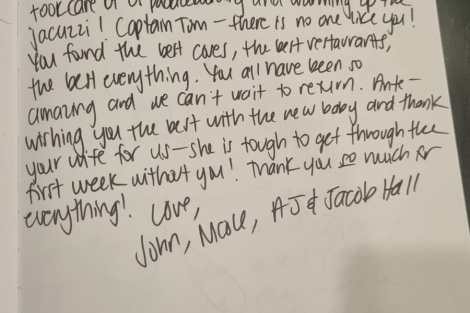 took care of
jacuzzi! Captain Tom – there is no one like you!
You found the best coves, the best restaurants,
the best everything. You all have been so
amazing and we can't wait to return. Ante –
wishing you the best with the new baby and thank
your wife for us – she is tough to get through the
first week without you! Thank you so much for
everything! Love,
John, AJ & Jacob Hall